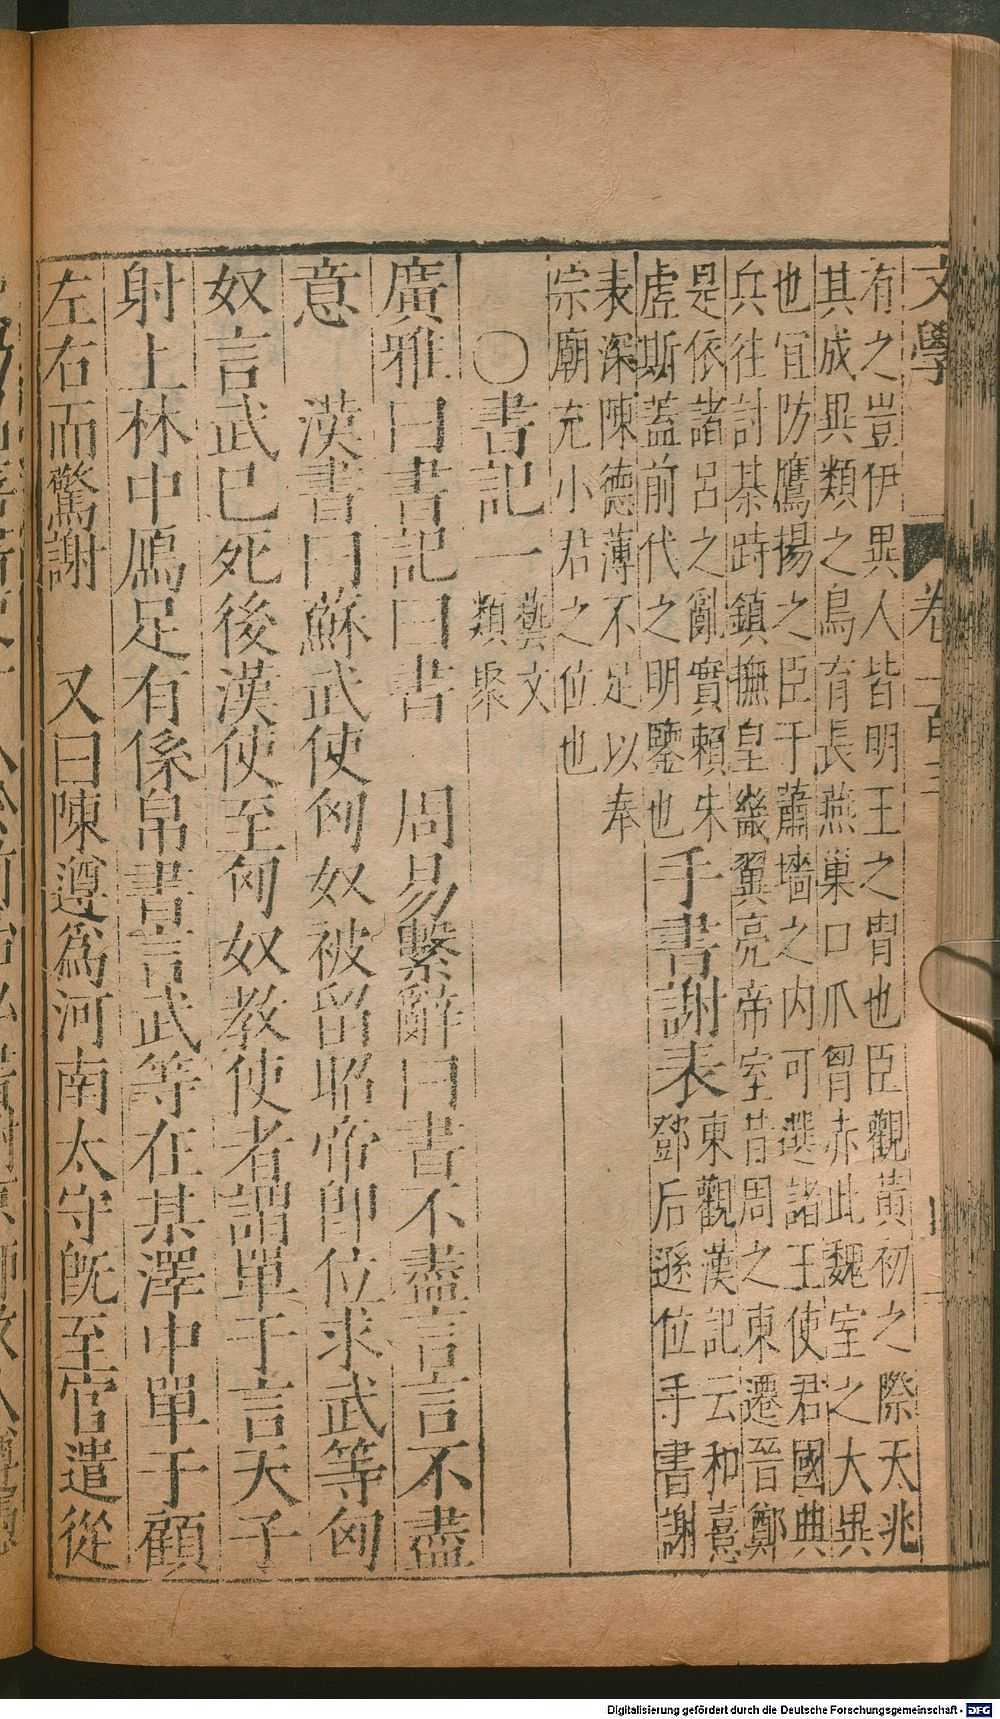 文學 卷二百三
有之豈伊異人皆明王之冑也臣觀黃初之際天兆
其成異類之鳥有長燕巢口爪胷赤此魏室之大異
也宜防鷹揚之臣于蕭墻之内可選諸王使君國典
兵往討棊時鎮撫皇畿翼亮帝室昔周之東遷晉鄭
是依諸呂之亂實賴朱
虛斯蓋前代之明鑒也手書謝表東觀漢記云和憙
鄧后遜位手書謝
表深陳德薄不足以奉
宗廟充小君之位也
○書記一藝文
類聚
廣雅曰書記曰書 周易繫辭曰書不盡言言不盡
意 漢書曰蘇武使匈奴被留昭帝即位求武等匈
奴言武已死後漢使至匈奴教使者謂單于言天子
射上林中鴈足有係帛書言武等在某澤中單于顧
左右而驚謝 又曰陳遵爲河南太守旣至官遣從
Digitalisierung gefördert durch die Deutsche Forschungsgemeinschaft - DFG